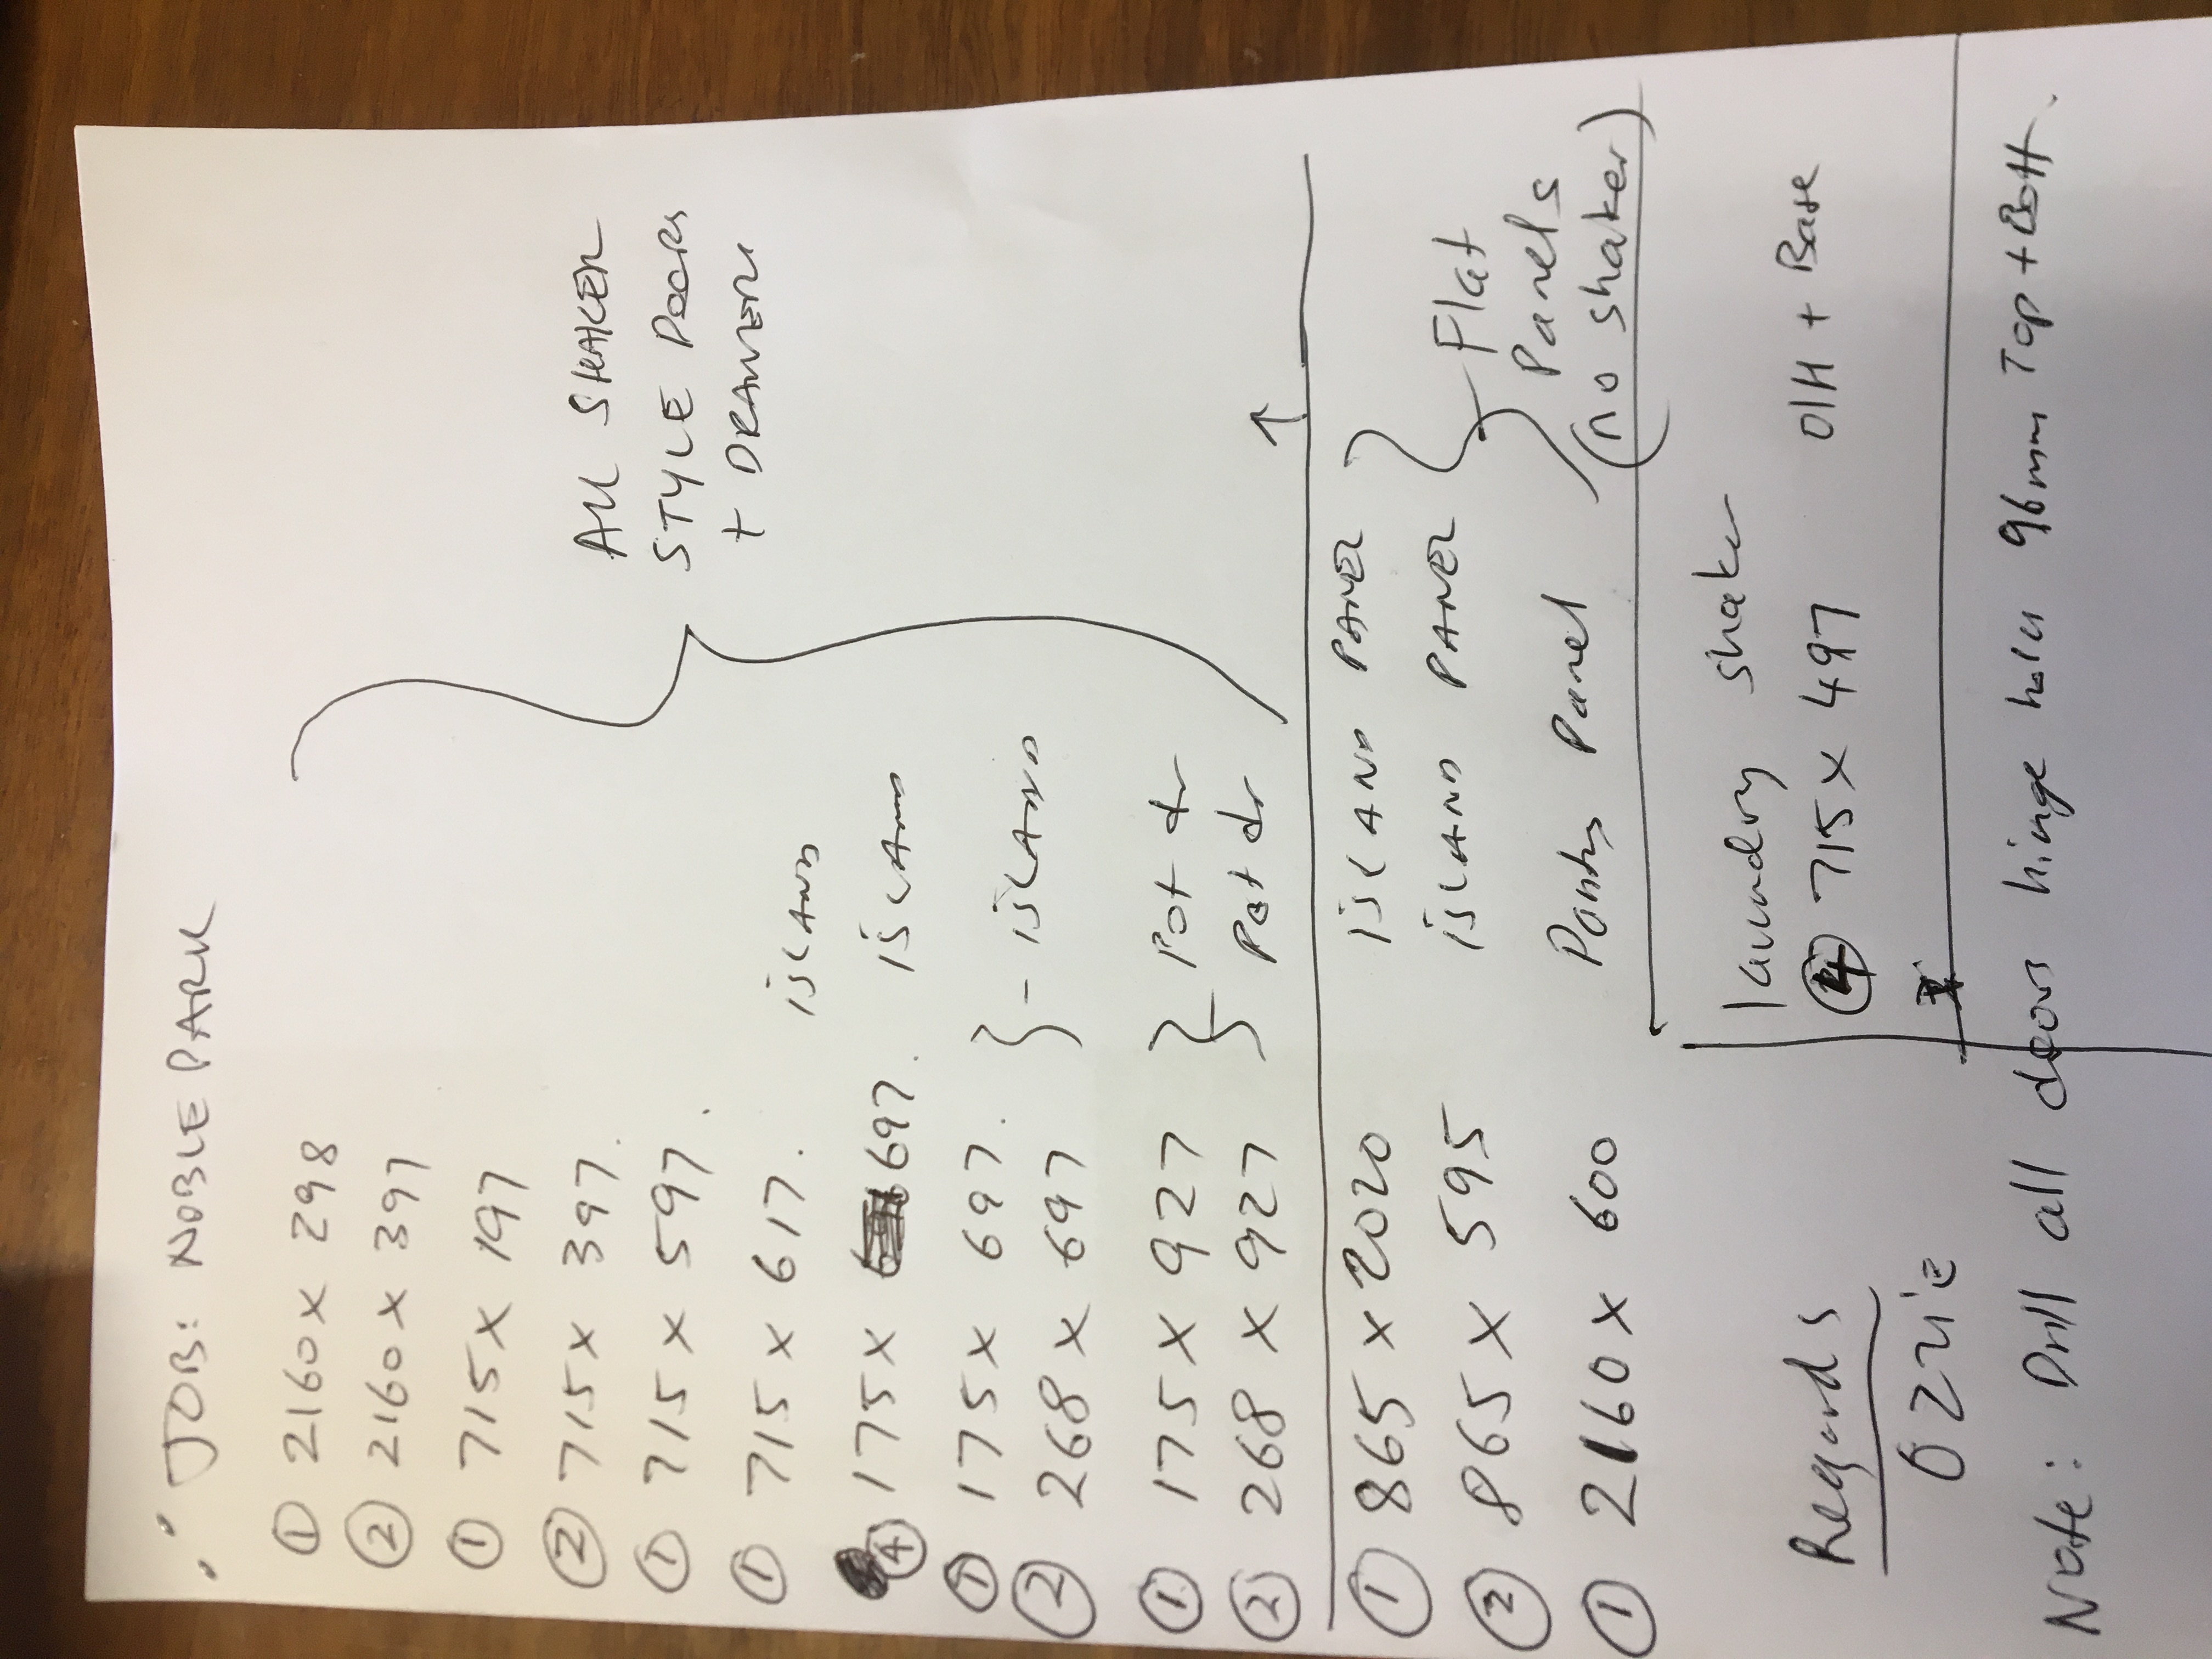 JOB: NOBLE PARK
① 2160 x 298
② 2160 x 397
① 715 x 197
② 715 x 397.
① 715 x 597.
① 715 x 617. ISLAND
④ 175 x 697. ISLAND
① 175 x 697.
② 268 x 697 } - ISLAND
① 175 x 927 } Pot dr
② 268 x 927 Pot dr
ALL SHAKER
STYLE DOORS
+ DRAWERS
① 865 x 2020 ISLAND PANEL
② 865 x 595 ISLAND PANEL
① 2160 x 600 Pantry Panel
} Flat
Panels
(no shaker)
laundry shaker
④ 715 x 497 O/H + Base
Regards
Ozzie
Note: Drill all doors hinge holes 96mm Top + Bott.